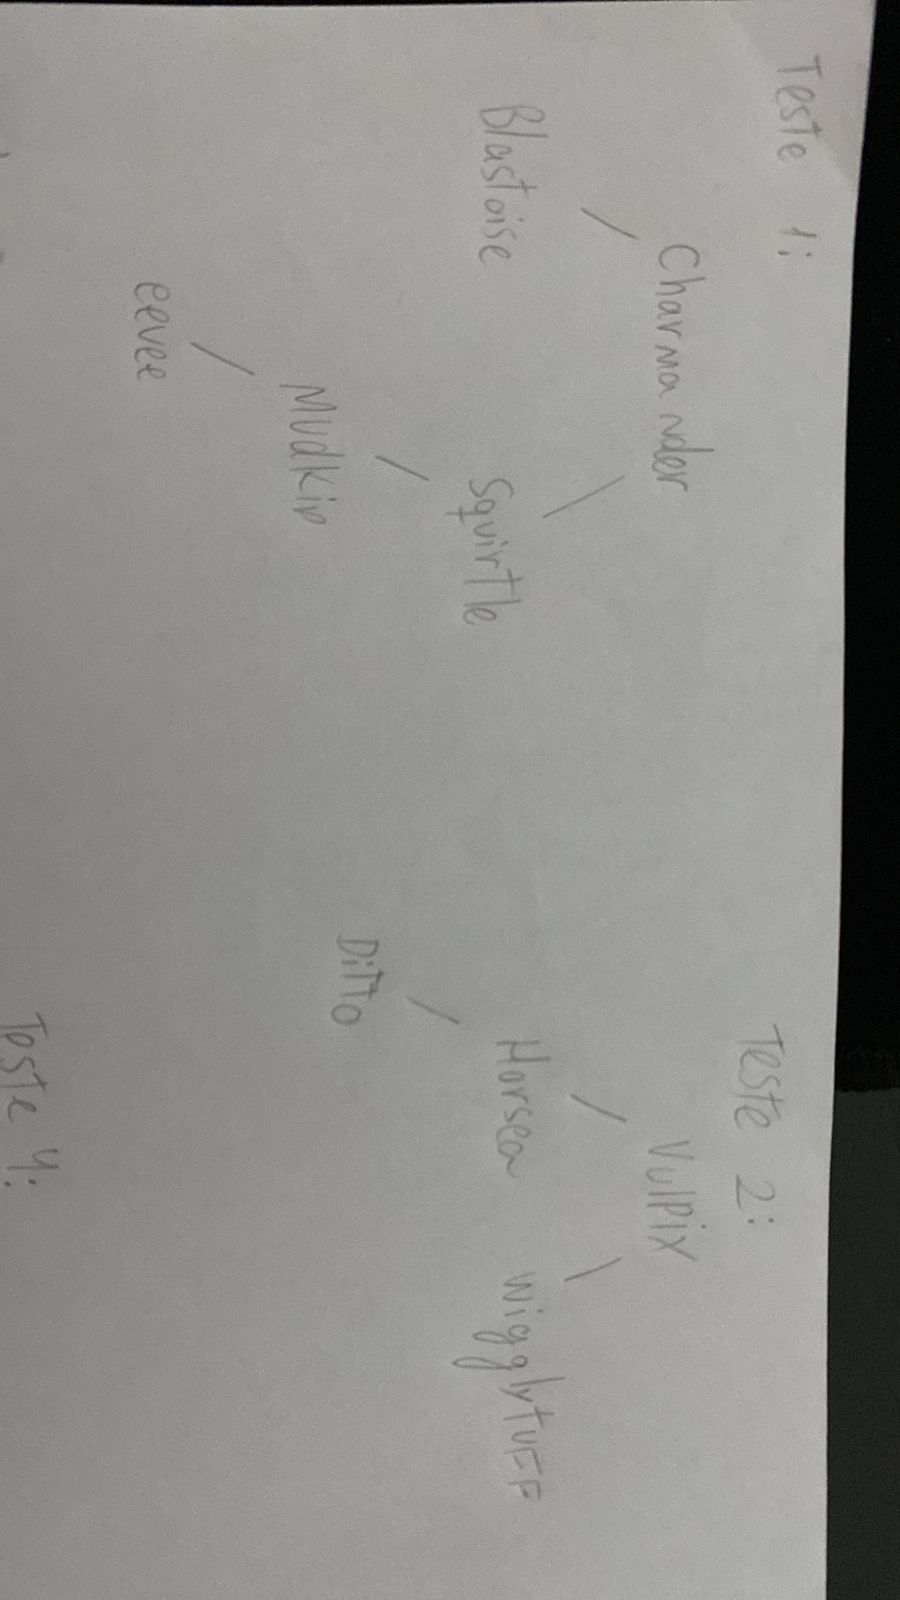 Teste 1:
Charmander
Blastoise
Squirtle
Mudkip
eevee
Teste 2:
Vulpix
Horsea
WigglytuFF
DiTTo
Teste 4: